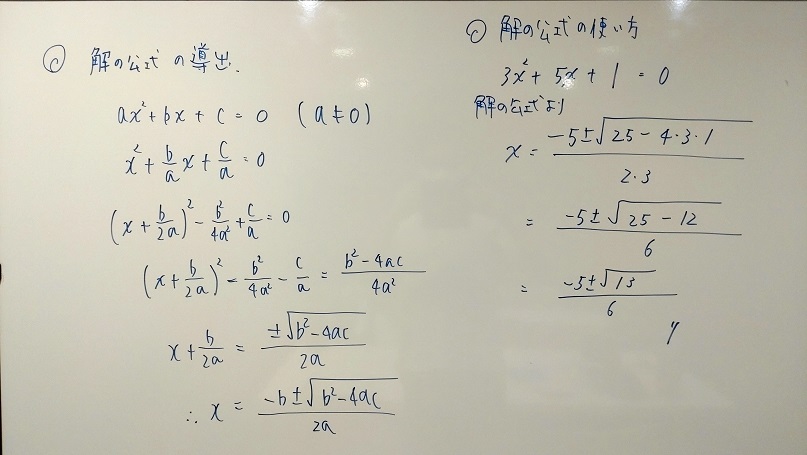 ◎ 解の公式の導出.
ax²+bx+c=0 (a≠0)
x²+b/a x+c/a=0
(x+b/2a)²-b²/4a²+c/a=0
(x+b/2a)²=b²/4a²-c/a=b²-4ac/4a²
x+b/2a=±√b²-4ac/2a
∴x=-b±√b²-4ac/2a
◎ 解の公式の使い方
3x²+5x+1=0
解の公式より
x=-5±√25-4・3・1/2・3
=-5±√25-12/6
=-5±√13/6